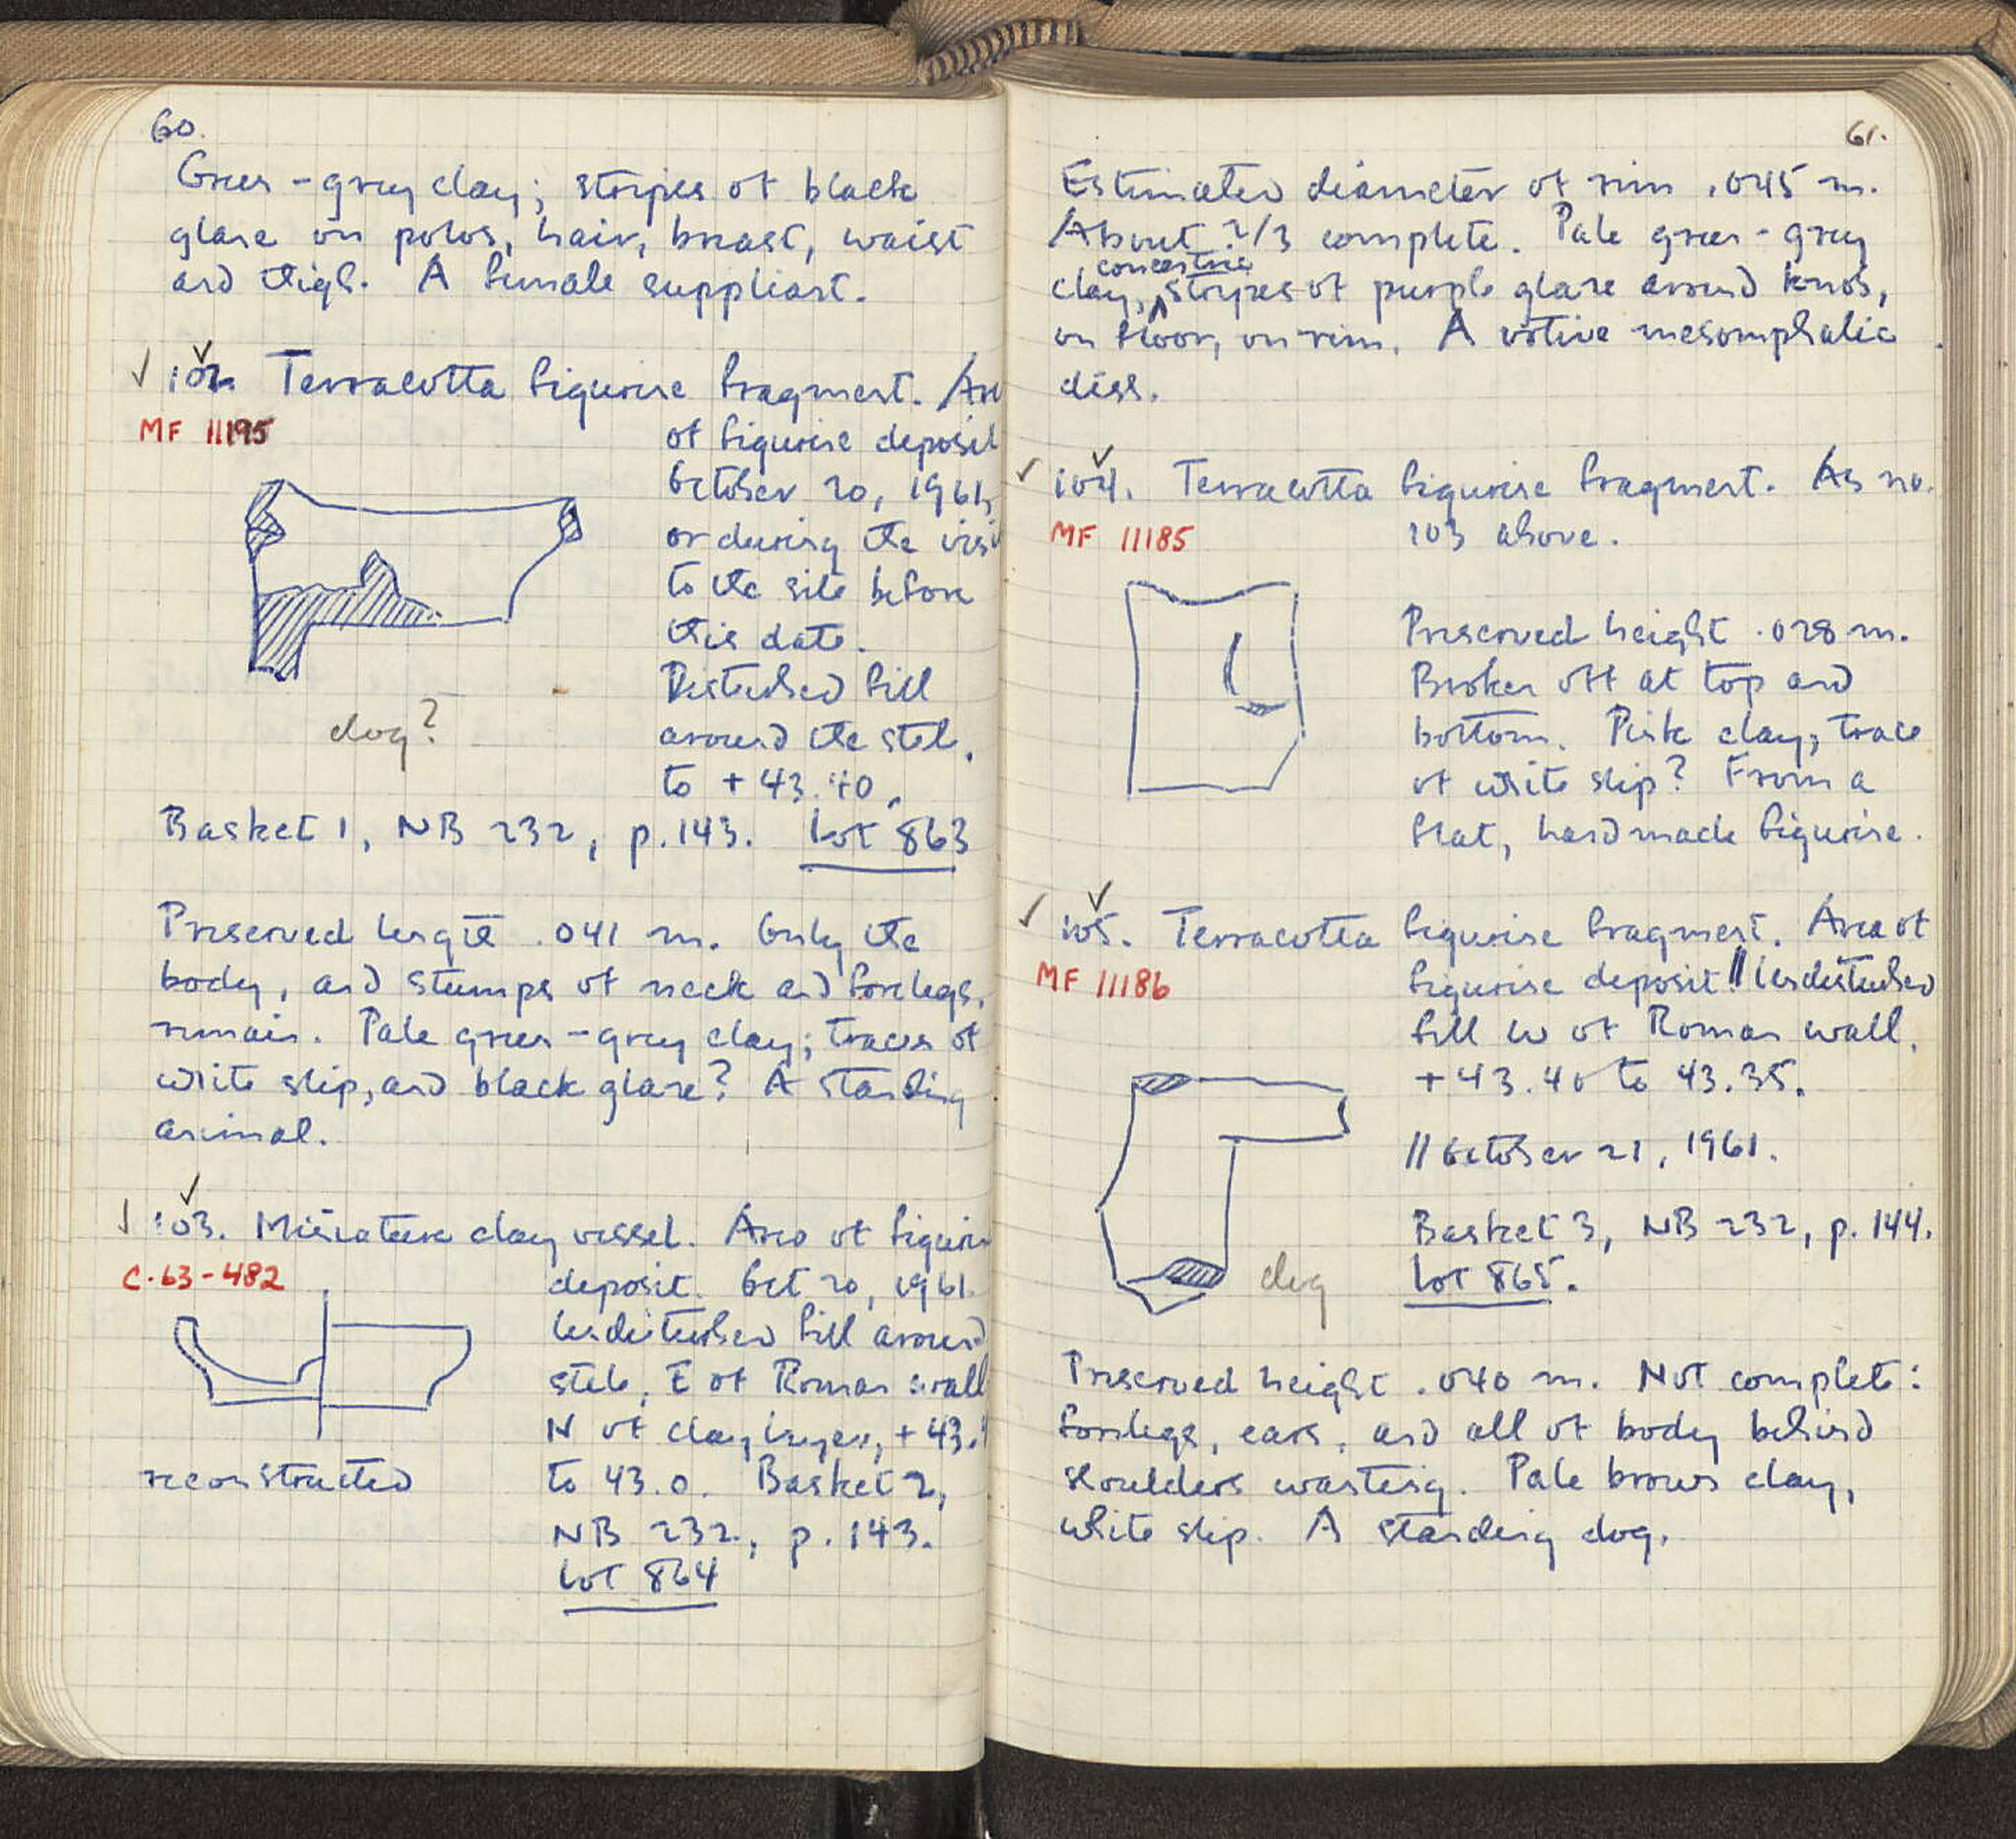 60.
Green-grey clay; stripes of black
glaze on polos, hair, breast, waist
and thigh. A female suppliant.
102. Terracotta figurine fragment. Are
MF 11195
of figurine deposit
October 20, 1961,
or during the visi
to the site before
this date.
Disturbed fill
around the stele,
to +43.40.
dog?
Basket 1, NB 232, p. 143. Lot 863
Preserved length .041 m. Only the
body, and stumps of neck and forelegs,
remain. Pale green-grey clay; traces of
white slip, and black glaze? A standing
animal.
103. Miniature clay vessel. Area of figurin
C-63-482
deposit. Oct 20, 1961.
Undisturbed fill around
stele, E of Roman wall
N of clay layer, +43.4
to 43.0. Basket 2,
NB 232, p. 143.
Lot 864
reconstructed
61.
Estimated diameter of rim .045 m.
About 2/3 complete. Pale green-grey
clay, concentric stripes of purple glaze around knob,
on floor, on rim. A votive mesomphalic
dish.
104. Terracotta figurine fragment. As no.
MF 11185
103 above.
Preserved height .028 m.
Broken off at top and
bottom. Pink clay, trace
of white slip? From a
flat, handmade figurine.
105. Terracotta figurine fragment. Area of
MF 11186
figurine deposit. || Undisturbed
fill W of Roman wall.
+43.40 to 43.35.
|| October 21, 1961.
Basket 3, NB 232, p. 144.
Lot 865.
dog
Preserved height .040 m. Not complete:
forelegs, ears, and all of body behind
shoulders wanting. Pale brown clay,
white slip. A standing dog.